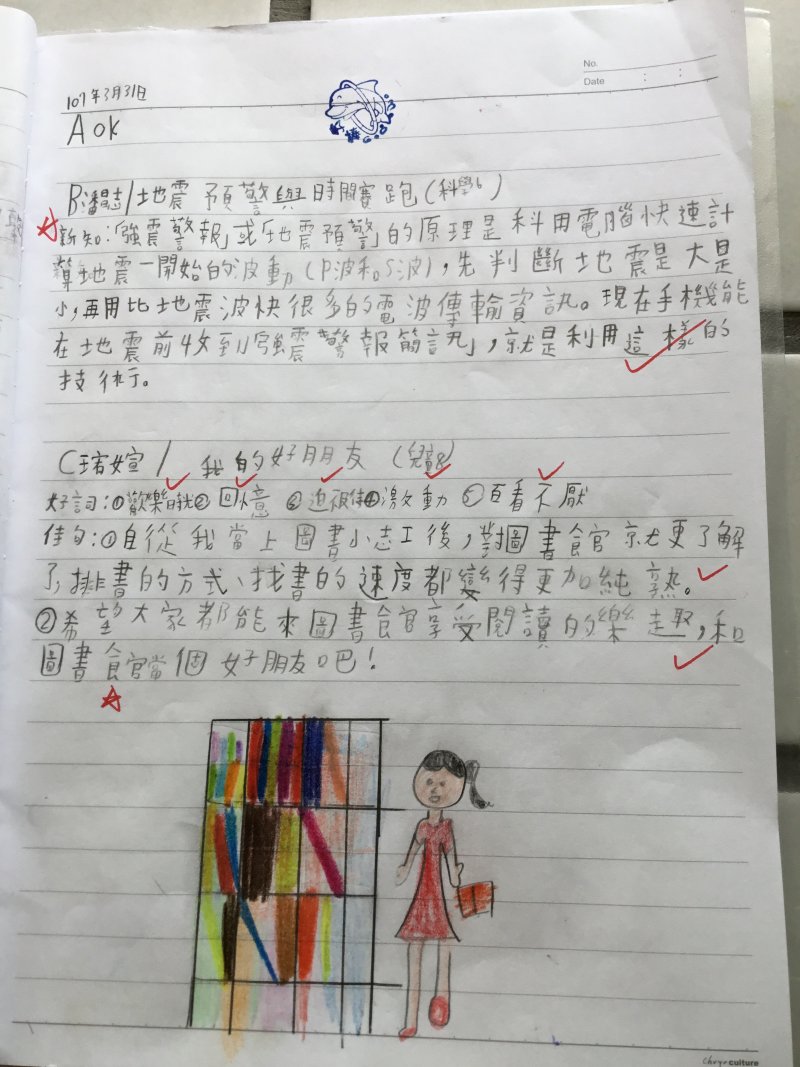 No.
Date : :
107年3月31日
A OK
B潘昌志/地震預警與時間賽跑(科學6)
新知:「強震警報」或「地震預警」的原理是利用電腦快速計
算地震一開始的波動(P波和S波),先判斷地震是大是
小,再用比地震波快很多的電波傳輸資訊。現在手機能
在地震前收到「強震警報簡訊」,就是利用這樣的
技術。
C瑃媗/我的好朋友(兒童8)
好詞:①歡樂時光②回憶③迫不及待④激動⑤百看不厭
佳句:①自從我當上圖書小志工後,對圖書館就更了解
了,排書的方式、找書的速度都變得更加純熟。
②希望大家都能來圖書館享受閱讀的樂趣,和
圖書館當個好朋友吧!
culture